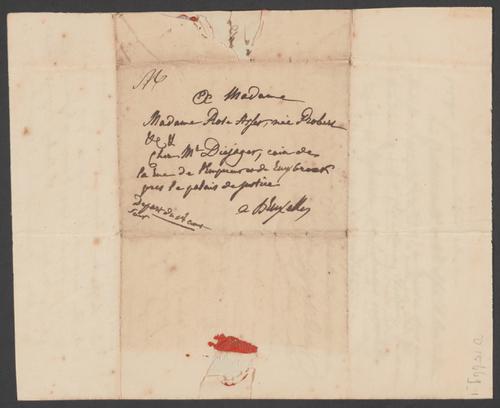 A Madame
Madame Rose Asser, née Robert
&c &
Chez Mr Dejager, coin de
la rue de l'Empereur de Ruysbroek
pres le palais de justice
a Bruxelles